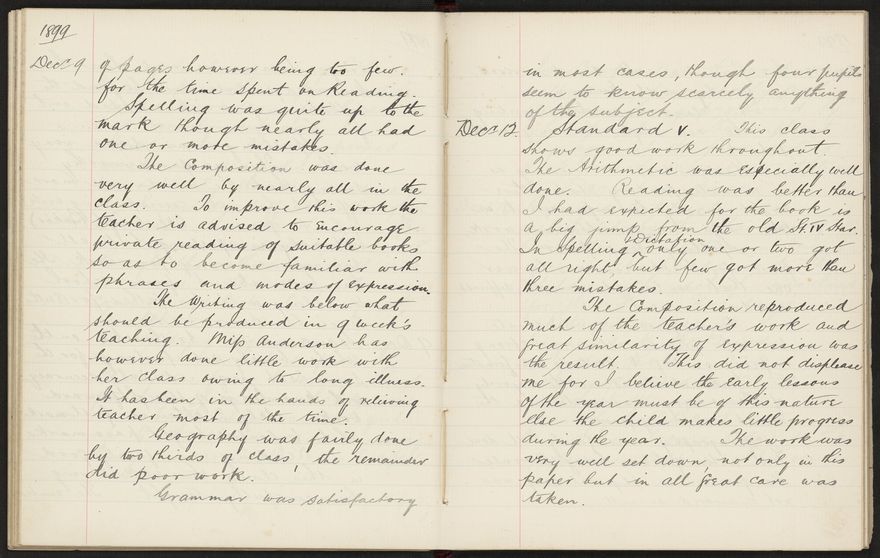 1899
Dec 9 of pages however being too few.
for the time spent on Reading.
Spelling was quite up to the
mark though nearly all had
one or more mistakes.
The Composition was done
very well by nearly all in the
class. To improve this work the
teacher is advised to encourage
private reading of suitable books
so as to become familiar with
phrases and modes of expression.
The Writing was below what
should be produced in 9 week's
teaching. Miss Anderson has
however done little work with
her class owing to long illness.
It has been in the hands of relieving
teacher most of the time.
Geography was fairly done
by two thirds of class, the remainder
did poor work.
Grammar was satisfactory
in most cases, though four pupils
seem to know scarcely anything
of the subject.
Dec 12. Standard V. This class
shows good work throughout
The Arithmetic was especially well
done. Reading was better than
I had expected for the book is
a big jump from the old St. IV Star.
In Spelling & Dictation only one or two got
all right, but few got more than
three mistakes.
The Composition reproduced
much of the teacher's work and
great similarity of expression was
the result. This did not displease
me for I believe the early lessons
of the year must be of this nature
else the child makes little progress
during the year. The work was
very well set down, not only in this
paper but in all great care was
taken.